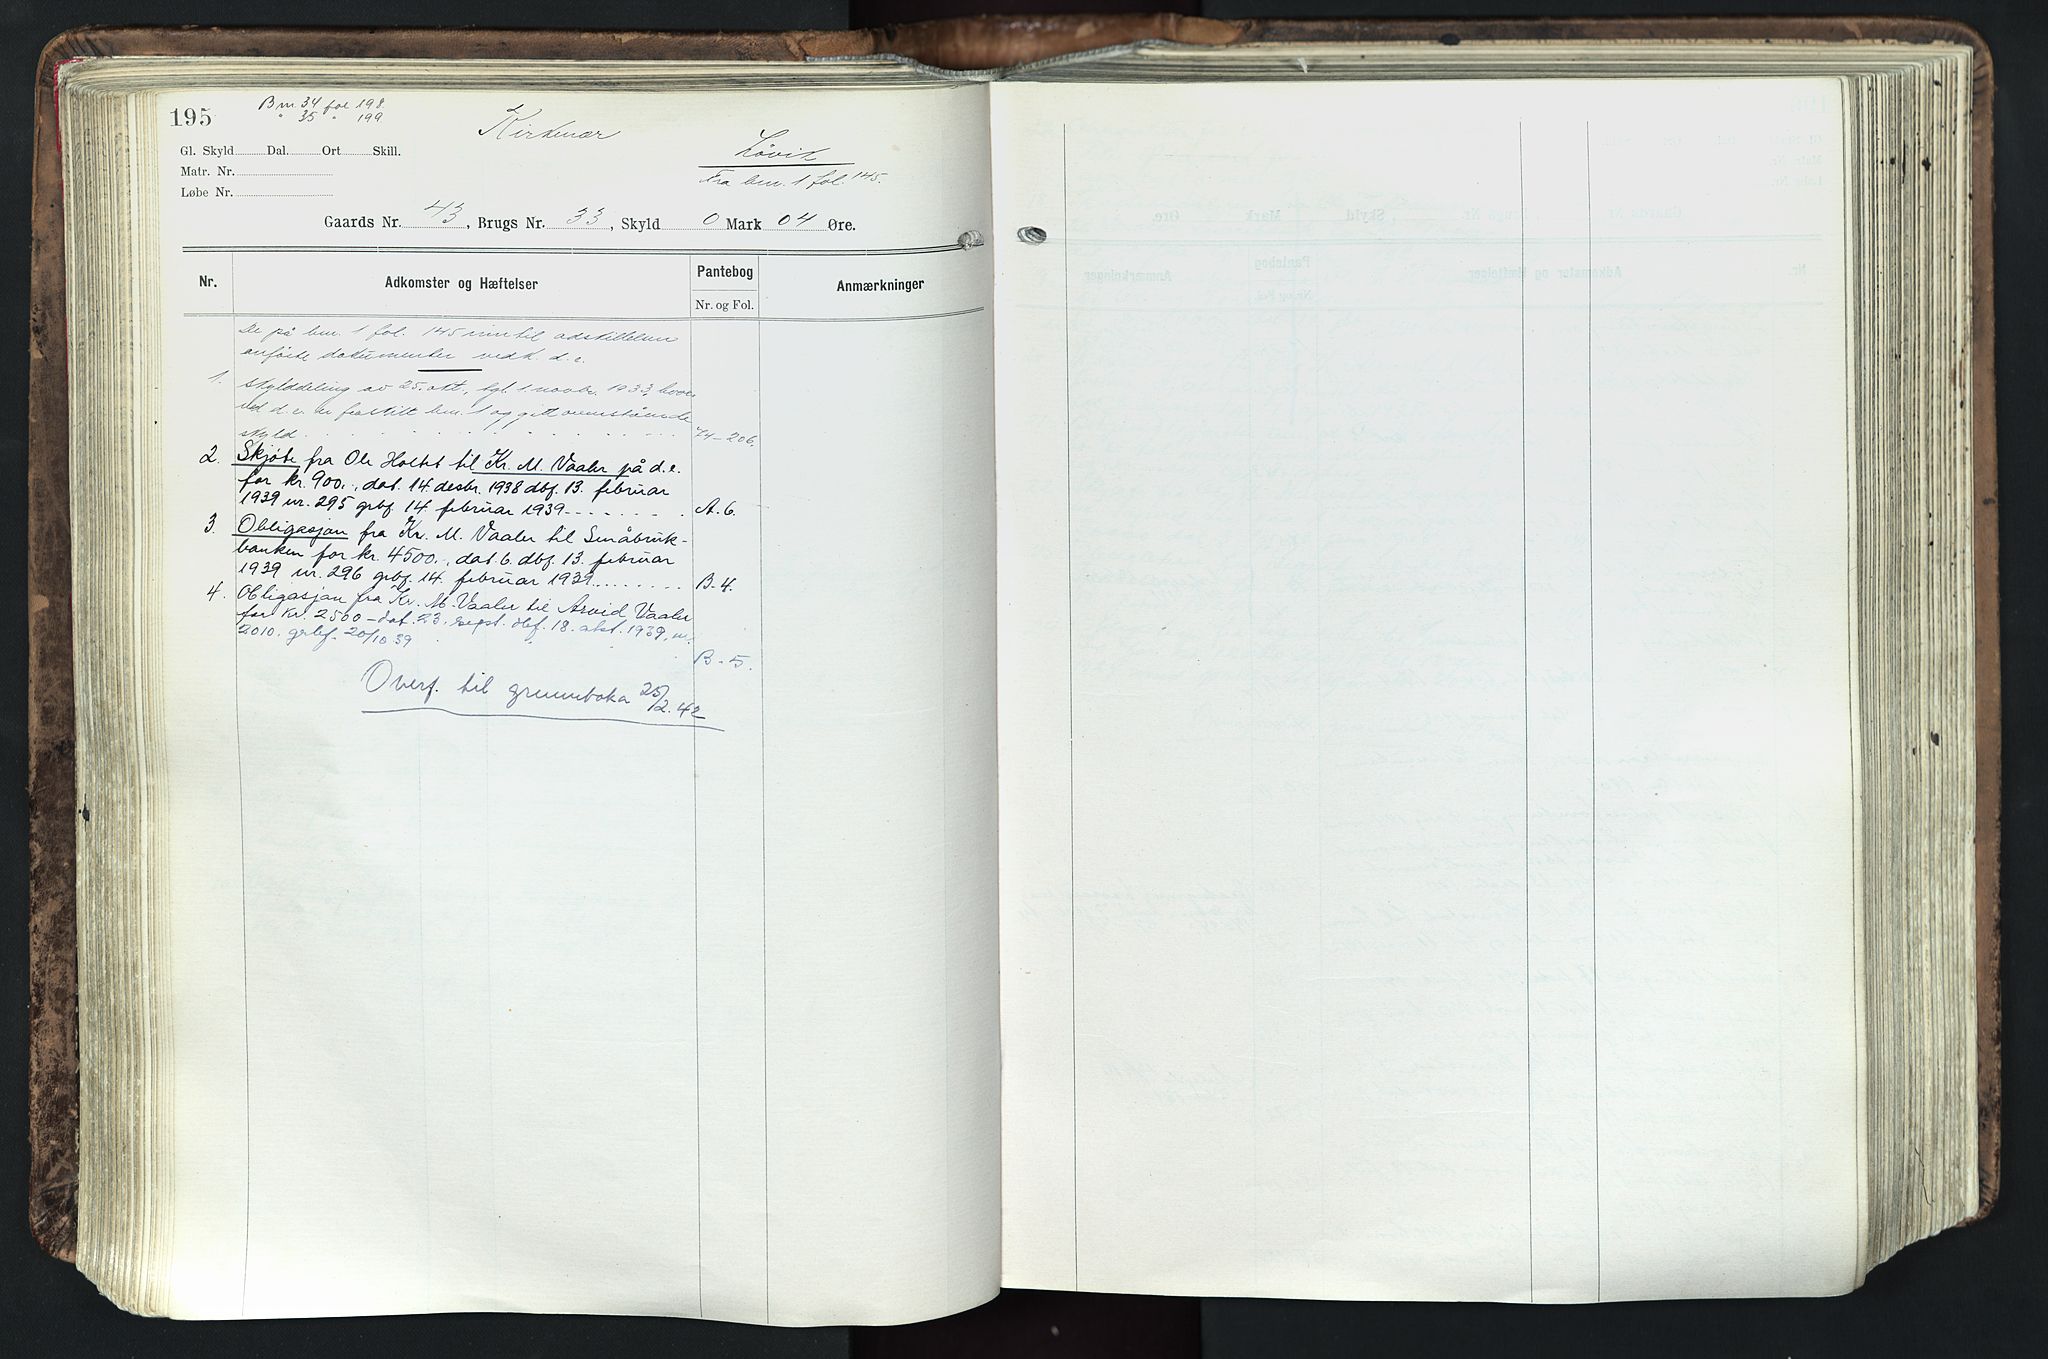 195
Bnr. 34 fol 198.
" 35 " 199
Kirkenær
Gl. Skyld Dal. Ort Skill.
Matr. Nr.
Løbe Nr.
Løvik
Fra bnr. 1 fol. 145.
Gaards Nr. 43, Brugs Nr. 33, Skyld 0 Mark 04 Øre.
Nr. Adkomster og Hæftelser Pantebog Anmærkninger
Nr. og Fol.
De på bnr. 1 fol. 145 inntil adskillelsen
anførte dokumenter vedk. d.e.
1. Skylddeling av 25. okt., tgl. 1 novbr. 1933, hvor-
ved d.e. er fraskilt bnr. 1 og gitt ovenstående
skyld 74-206.
2. Skjøte fra Ole Holtet til Kr. M. Vaaler på d.e.
for kr. 900., dat. 14. desbr. 1938 dbf. 13. februar
1939 nr. 295 grbf. 14. februar 1939 A.6.
3. Obligasjon fra Kr. M. Vaaler til Småbruk-
banken for kr. 4500., dat. 6. dbf. 13. februar
1939 nr. 296 grbf. 14. februar 1939 B-4.
4. Obligasjon fra Kr. M. Vaaler til Arvid Vaaler
for kr. 2500 - dat. 23. sept. dbf. 18. okt. 1939, nr.
2010. grbf. 20/10 39
B-5.
Overf. til grunnboka 25/2.42